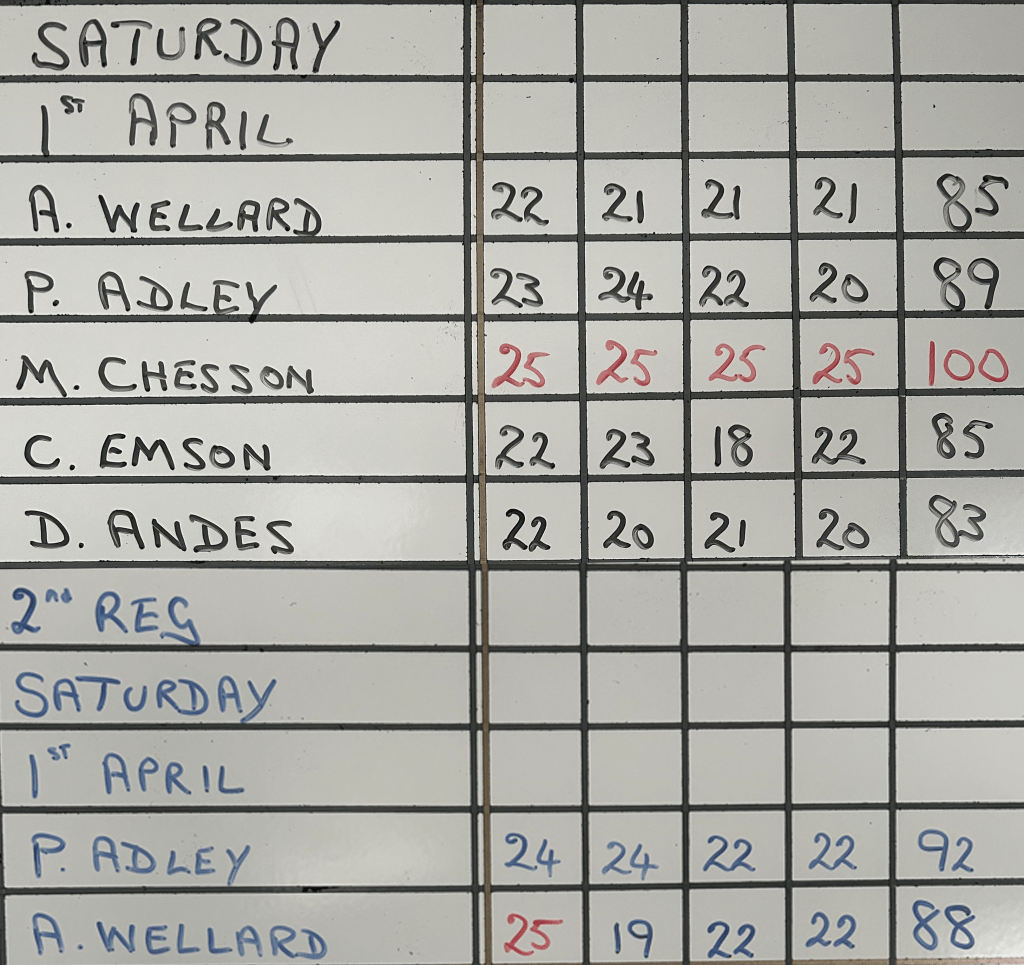 SATURDAY
1ST APRIL
A. WELLARD 22 21 21 21 85
P. ADLEY 23 24 22 20 89
M. CHESSON 25 25 25 25 100
C. EMSON 22 23 18 22 85
D. ANDES 22 20 21 20 83
2nd REG
SATURDAY
1ST APRIL
P. ADLEY 24 24 22 22 92
A. WELLARD 25 19 22 22 88